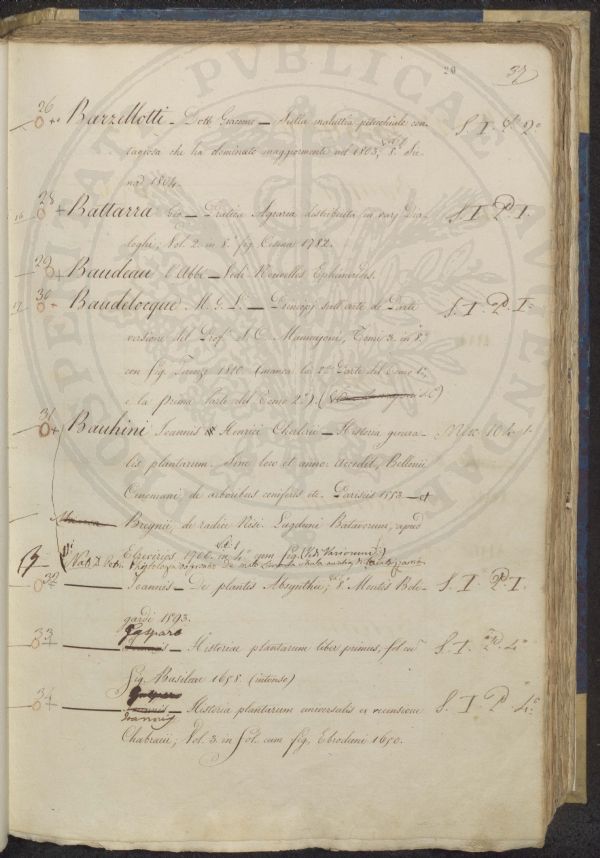 PROSPERITATI PUBLICAE AUGENDAE
20 37
26 + Barzellotti - Dott. Giacomo — Sulla malattia petecchiale con-
tagiosa che ha dominato maggiormente nel 1803, Vol. 1 8.° Sie-
na 1804.
S. I. 2.°
16 28 + Battarra Gio — Pratica Agraria distribuita in varj Dia-
loghi; Vol. 2. in 8.° fig. Cesena 1782.
S. I. P. I.
29 + Baudeau l'Abbé — Vedi Nouvelles Ephemerides.
17 30 - Baudelocque M. G. L. — Principj sull'arte de Parto
versione del Prof. Tomi 3. in 8.°
con fig. Firenze (manca la 2.da Parte del Tomo 1.°
e la prima Parte del Tomo 2.°)
S. I. P. I.
31 + Bauhini Joannis Henrici Cherlerii — Historia genera-
lis plantarum. Sine loco et anno: accedit, Bellonii
Cenomani de arboribus coniferis etc. Parisiis 1553 — et
Breynii, de radice Nisi. Lugduni Batavorum, apud
Elzevirios 1700. in 4.° cum fig. (Vedi Variorum)
32 Joannis — De plantis Absynthii, 8.° Montis Bele-
gardi 1593.
S. I. P. I.
33 Gaspare
Joannis — Historiae plantarum liber primus, fol. cu.m
fig. Basileae 1658. (intonso)
S. I. P. 4.°
34 Joannis — Historia plantarum universalis ex recensione
Chabraeii; Vol. 3. in fol. cum fig. Ebroduni 1650.
S. I. P. 4.°